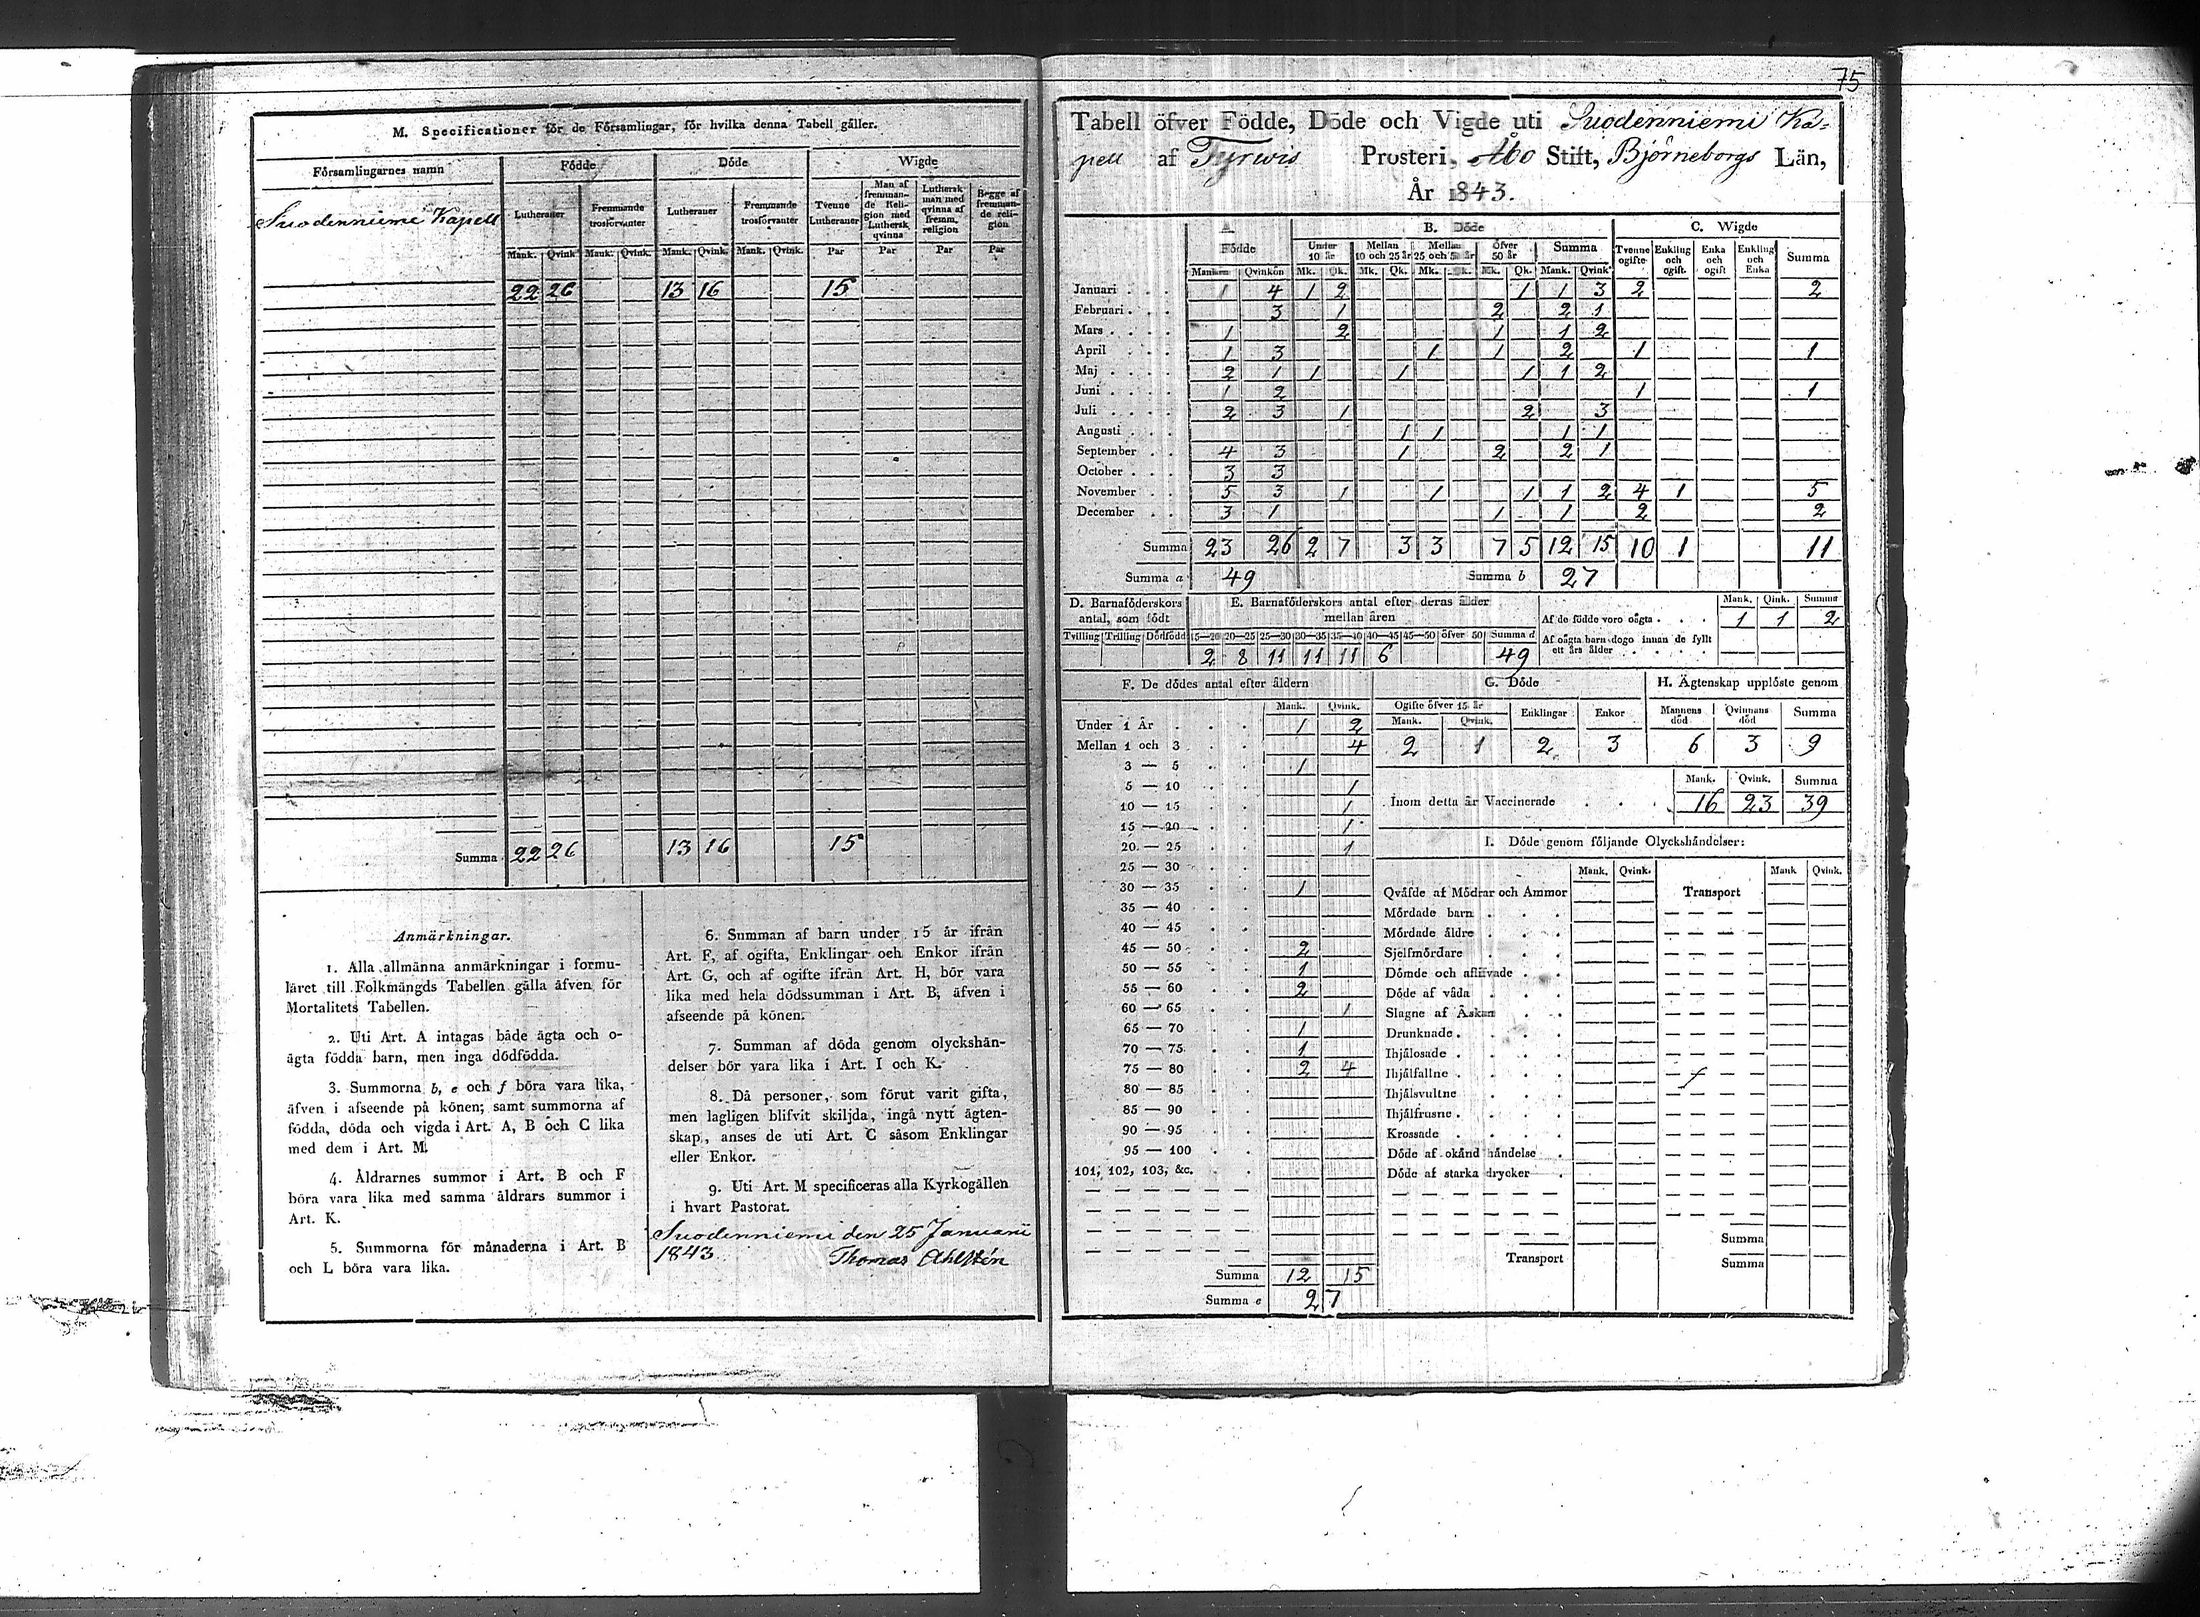 M. Specificationer för de Församlingar, för hvilka denna Tabell gäller.
Församlingarnes namn Födde Döde Wigde
Lutheraner Fremmande trosförvanter Lutheraner Fremmande trosförvanter Tvenne Lutheraner Man af fremmande Religion med Luthersk qvinna Luthersk man med qvinna af fremm. religion Begge af fremmande religion
Mank. Qvink. Mank. Qvink. Mank. Qvink. Mank. Qvink. Par Par Par Par
Suodenniemi Kapell
22 26 13 16 15
Summa 22 26 13 16 15
Anmärkningar.
1. Alla allmänna anmärkningar i formu-
läret till Folkmängds Tabellen gälla äfven för
Mortalitets Tabellen.
2. Uti Art. A intagas både ägta och o-
ägta födda barn, men inga dödfödda.
3. Summorna b, e och f böra vara lika,
äfven i afseende på könen; samt summorna af
födda, döda och vigda i Art. A, B och C lika
med dem i Art. M.
4. Åldrarnes summor i Art. B och F
böra vara lika med samma åldrars summor i
Art. K.
5. Summorna för månaderna i Art. B
och L böra vara lika.
6. Summan af barn under 15 år ifrån
Art. F, af ogifta, Enklingar och Enkor ifrån
Art. G, och af ogifte ifrån Art. H, bör vara
lika med hela dödssumman i Art. B, äfven i
afseende på könen.
7. Summan af döda genom olyckshän-
delser bör vara lika i Art. I och K.
8. Då personer, som förut varit gifta,
men lagligen blifvit skiljda, ingå nytt ägten-
skap, anses de uti Art. C såsom Enklingar
eller Enkor.
9. Uti Art. M specificeras alla Kyrkogällen
i hvart Pastorat.
Suodenniemi den 25 Januarii
1843. Thomas Ahlstén
75
Tabell öfver Födde, Döde och Vigde uti Suodenniemi Ka-
pell af Tyrwis Prosteri, Åbo Stift, Björneborgs Län,
År 1843.
A Födde B. Döde C. Wigde
Under 10 år Mellan 10 och 25 år Mellan 25 och 50 år Öfver 50 år Summa Tvenne ogifte Enkling och ogift. Enka och ogift Enkling och Enka Summa
Mankön Qvinkön Mk. Qk. Mk. Qk. Mk. Qk. Mk. Qk. Mank. Qvink.
Januari 1 4 1 2 1 1 3 2 2
Februari 3 1 2 2 1
Mars 1 2 1 1 2
April 1 3 1 1 2 1 1
Maj 2 1 1 1 1 1 2
Juni 1 2 1 1
Juli 2 3 1 2 3
Augusti 1 1 1 1
September 4 3 1 2 2 1
October 3 3
November 5 3 1 1 1 1 2 4 1 5
December 3 1 1 1 2 2
Summa 23 26 2 7 3 3 7 5 12 15 10 1 11
Summa a 49 Summa b 27
D. Barnaföderskors antal, som födt
Tvilling Trilling Dödfödd
E. Barnaföderskors antal efter deras ålder mellan åren
15—20 20—25 25—30 30—35 35—40 40—45 45—50 öfver 50 Summa d
2 8 11 11 11 6 49
Mank. Qink. Summa
Af de födde voro oägta 1 1 2
Af oägta barn dogo innan de fyllt
ett års ålder
F. De dödes antal efter åldern
Mank. Qvink.
Under 1 År 1 2
Mellan 1 och 3 4
3 — 5 1
5 — 10 1
10 — 15 1
15 — 20 1
20 — 25 1
25 — 30
30 — 35 1
35 — 40
40 — 45
45 — 50 2
50 — 55 1
55 — 60 2
60 — 65 1
65 — 70 1
70 — 75 1
75 — 80 2 4
80 — 85
85 — 90
90 — 95
95 — 100
101, 102, 103, &c.
Summa 12 15
Summa e 27
G. Döde
Ogifte öfver 15 år Enklingar Enkor
Mank. Qvink.
2 1 2 3
H. Ägtenskap upplöste genom
Mannens död Qvinnans död Summa
6 3 9
Mank. Qvink. Summa
Inom detta år Vaccinerade 16 23 39
I. Döde genom följande Olyckshändelser:
Mank. Qvink. Mank Qvink.
Qväfde af Mödrar och Ammor Transport
Mördade barn
Mördade äldre
Sjelfmördare
Dömde och aflifvade
Döde af våda
Slagne af Åskan
Drunknade
Ihjälosade
Ihjälfallne
Ihjälsvultne
Ihjälfrusne
Krossade
Döde af okänd händelse
Döde af starka drycker
Summa
Transport Summa